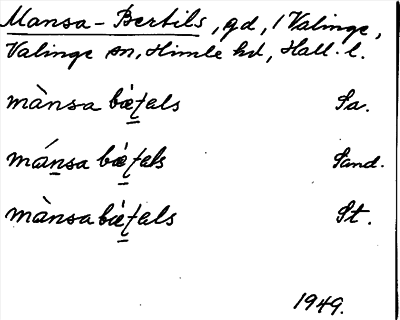 Mansa-Bertils, gd, 1 Valinge,
Valinge sn, Himle hd, Hall. l.
mànsa bæ̀ʈals Sa.
mánsa bæ̀ʈals Sand.
mànsa bæ̀ʈals St.
1949.